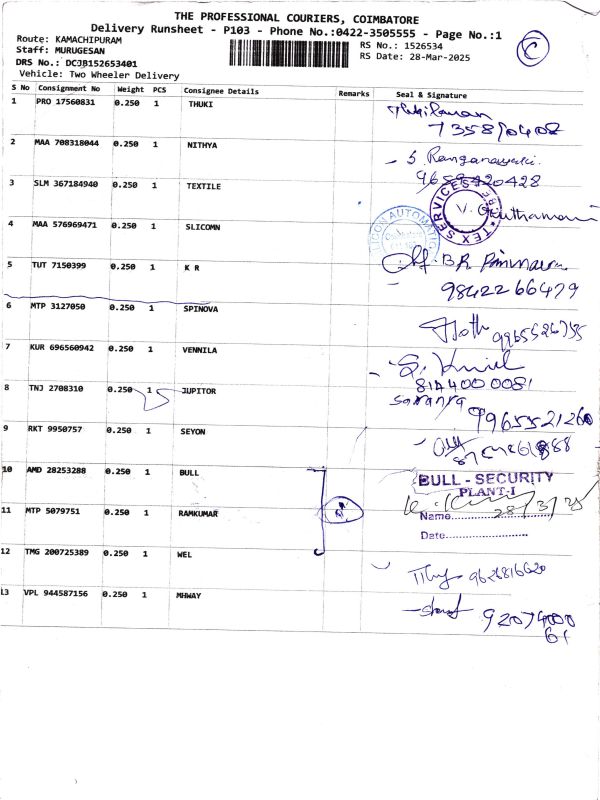 THE PROFESSIONAL COURIERS, COIMBATORE
Delivery Runsheet - P103 - Phone No.:0422-3505555 - Page No.:1
Route: KAMACHIPURAM
RS No.: 1526534
Staff: MURUGESAN
RS Date: 28-Mar-2025
C
DRS No.: DCJB152653401
Vehicle: Two Wheeler Delivery
S No Consignment No Weight PCS Consignee Details Remarks Seal & Signature
1 PRO 17560831 0.250 1 THUKI
2 MAA 708318044 0.250 1 NITHYA
S. Ranganayaki.
9659420428
3 SLM 367184940 0.250 1 TEXTILE
TEX SERVICES
4 MAA 576969471 0.250 1 SLICOMN
5 TUT 7150399 0.250 1 K R
9842266479
6 MTP 3127050 0.250 1 SPINOVA
7 KUR 696560942 0.250 1 VENNILA
8144000081
8 TNJ 2708310 0.250 1 JUPITOR
Saranya
9965521260
9 RKT 9950757 0.250 1 SEYON
10 AMD 28253288 0.250 1 BULL
BULL - SECURITY
PLANT-I
11 MTP 5079751 0.250 1 RAMKUMAR
Name 28/3/25
Date
12 TMG 200725389 0.250 1 WEL
9626816620
13 VPL 944587156 0.250 1 MHWAY
92074000
61